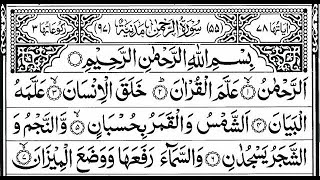 اٰیاتہا ۷۸ (۵۵) سُوْرَةُ الرَّحْمٰنِ مَدَنِيَّةٌ (۹۷) رکوعاتہا ۳
بِسْمِ اللهِ الرَّحْمٰنِ الرَّحِيْمِ
اَلرَّحْمٰنُ ۙ۱ عَلَّمَ الْقُرْاٰنَ ؕ۲ خَلَقَ الْاِنْسَانَ ۙ۳ عَلَّمَهُ
الْبَيَانَ ۴ اَلشَّمْسُ وَالْقَمَرُ بِحُسْبَانٍ ۪۵ وَّالنَّجْمُ وَ
الشَّجَرُ يَسْجُدٰنِ ۶ وَالسَّمَآءَ رَفَعَهَا وَوَضَعَ الْمِيْزَانَ ۙ۷